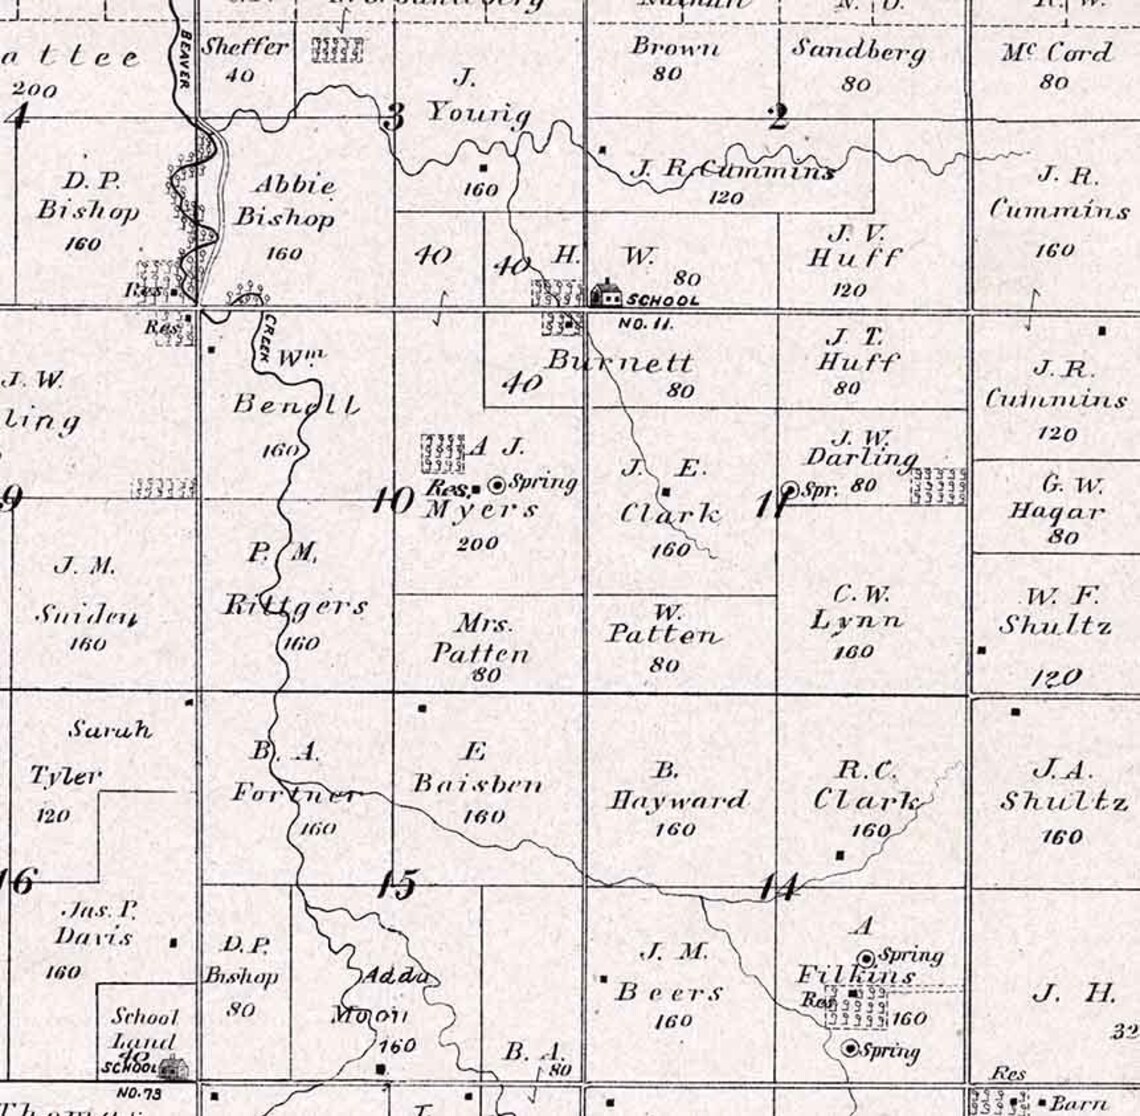 BEAVER
Sheffer
40
attee
200
4
3
J.
Young
160
Brown
80
Sandberg
80
2
Mc Cord
80
D. P.
Bishop
160
Res.
Abbie
Bishop
160
40
40
H. W.
80
SCHOOL
NO. 11.
J. R. Cummins
120
J. V.
Huff
120
J. R.
Cummins
160
Res
J. W.
ling
CREEK
Wm
Benell
160
40
Burnett
80
J. T.
Huff
80
J. R.
Cummins
120
9
10
A J.
Res. Spring
Myers
200
J. E.
Clark
160
J. W.
Darling
Spr. 80
11
G. W.
Hagar
80
J. M.
Sniden
160
P. M.
Rittgers
160
Mrs.
Patten
80
W.
Patten
80
C. W.
Lynn
160
W. F.
Shultz
120
Sarah
Tyler
120
B. A.
Fortner
160
E
Baisben
160
B.
Hayward
160
R. C.
Clark
160
J. A.
Shultz
160
16
15
14
Jas. P.
Davis
160
D. P.
Bishop
80
Adda
Moon
160
B. A.
80
J. M.
Beers
160
A
Spring
Filkins
Res
160
Spring
J. H.
32
School
Land
40
SCHOOL
NO. 73
Res
Barn